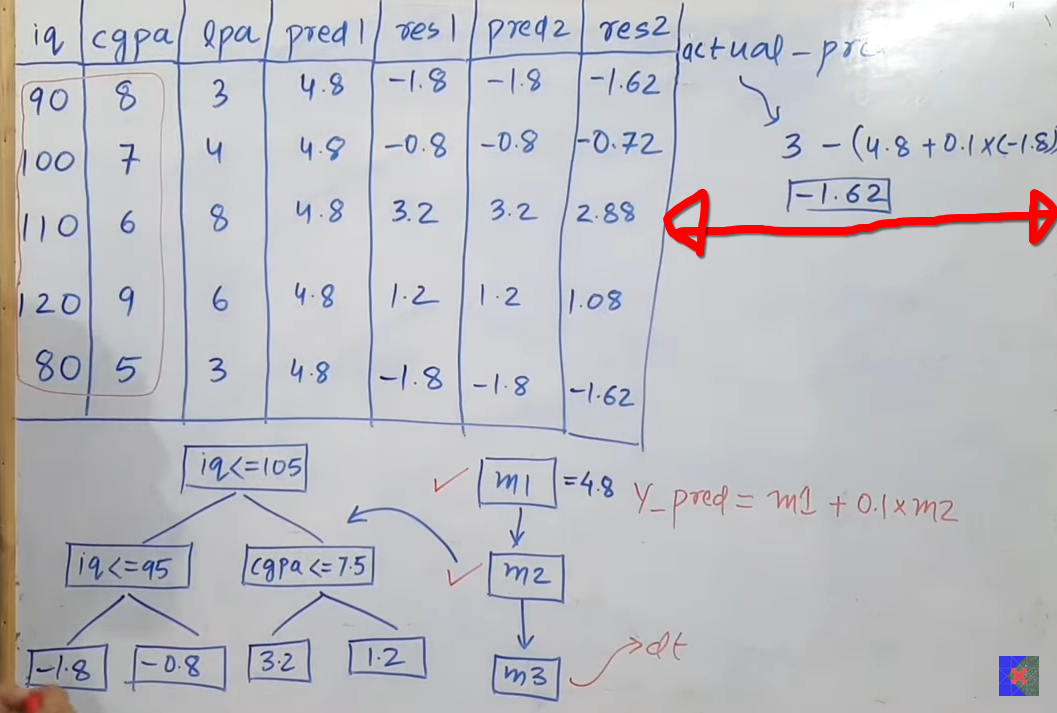 iq cgpa lpa pred1 res1 pred2 res2
90 8 3 4.8 -1.8 -1.8 -1.62
100 7 4 4.8 -0.8 -0.8 -0.72
110 6 8 4.8 3.2 3.2 2.88
120 9 6 4.8 1.2 1.2 1.08
80 5 3 4.8 -1.8 -1.8 -1.62
actual - pre
3 - (4.8 + 0.1 x (-1.8)
-1.62
iq<=105
iq<=95 cgpa<=7.5
-1.8 -0.8 3.2 1.2
m1 = 4.8
m2
m3
Y_pred = m1 + 0.1 x m2
dt